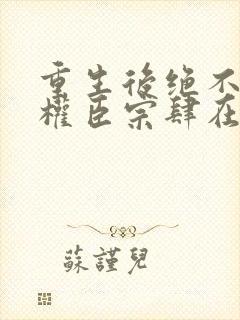 重生後绝不
權臣宗肆在
蘇謹兒